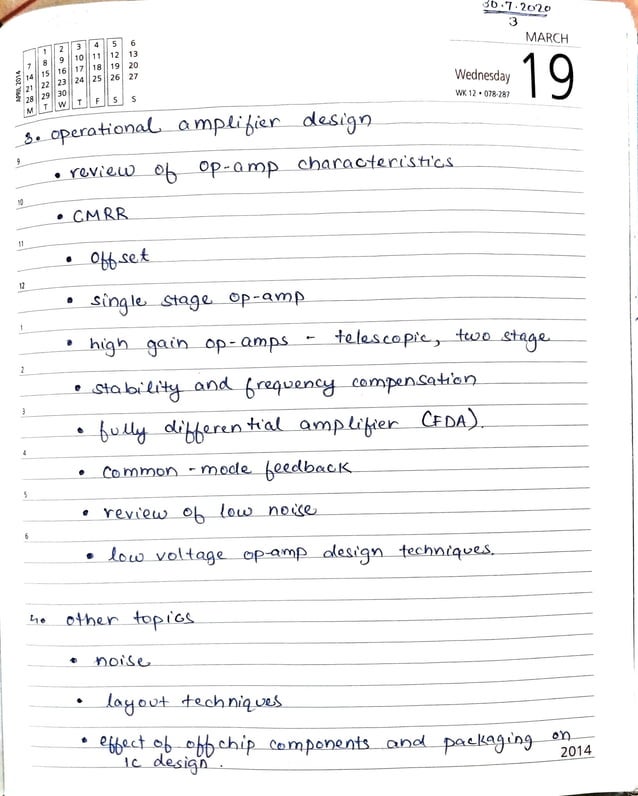 30.7.2020
3
MARCH
Wednesday 19
WK 12 • 078-287
APRIL 2014
1 2 3 4 5 6
7 8 9 10 11 12 13
14 15 16 17 18 19 20
21 22 23 24 25 26 27
28 29 30
M T W T F S S
3. operational amplifier design
9
• review of op-amp characteristics
10
• CMRR
11
• offset
12
• single stage op-amp
1
• high gain op-amps - telescopic, two stage
2
• stability and frequency compensation
3
• fully differential amplifier (FDA).
4
• common-mode feedback
5
• review of low noise
6
• low voltage op-amp design techniques.
4. other topics
• noise
• layout techniques
• effect of offchip components and packaging on
IC design.
2014